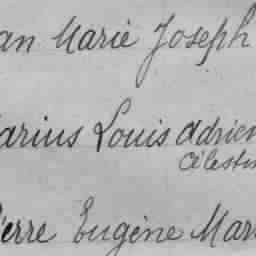 an Marie Joseph
arius Louis Adrien
Célestin
ierre Eugène Mar